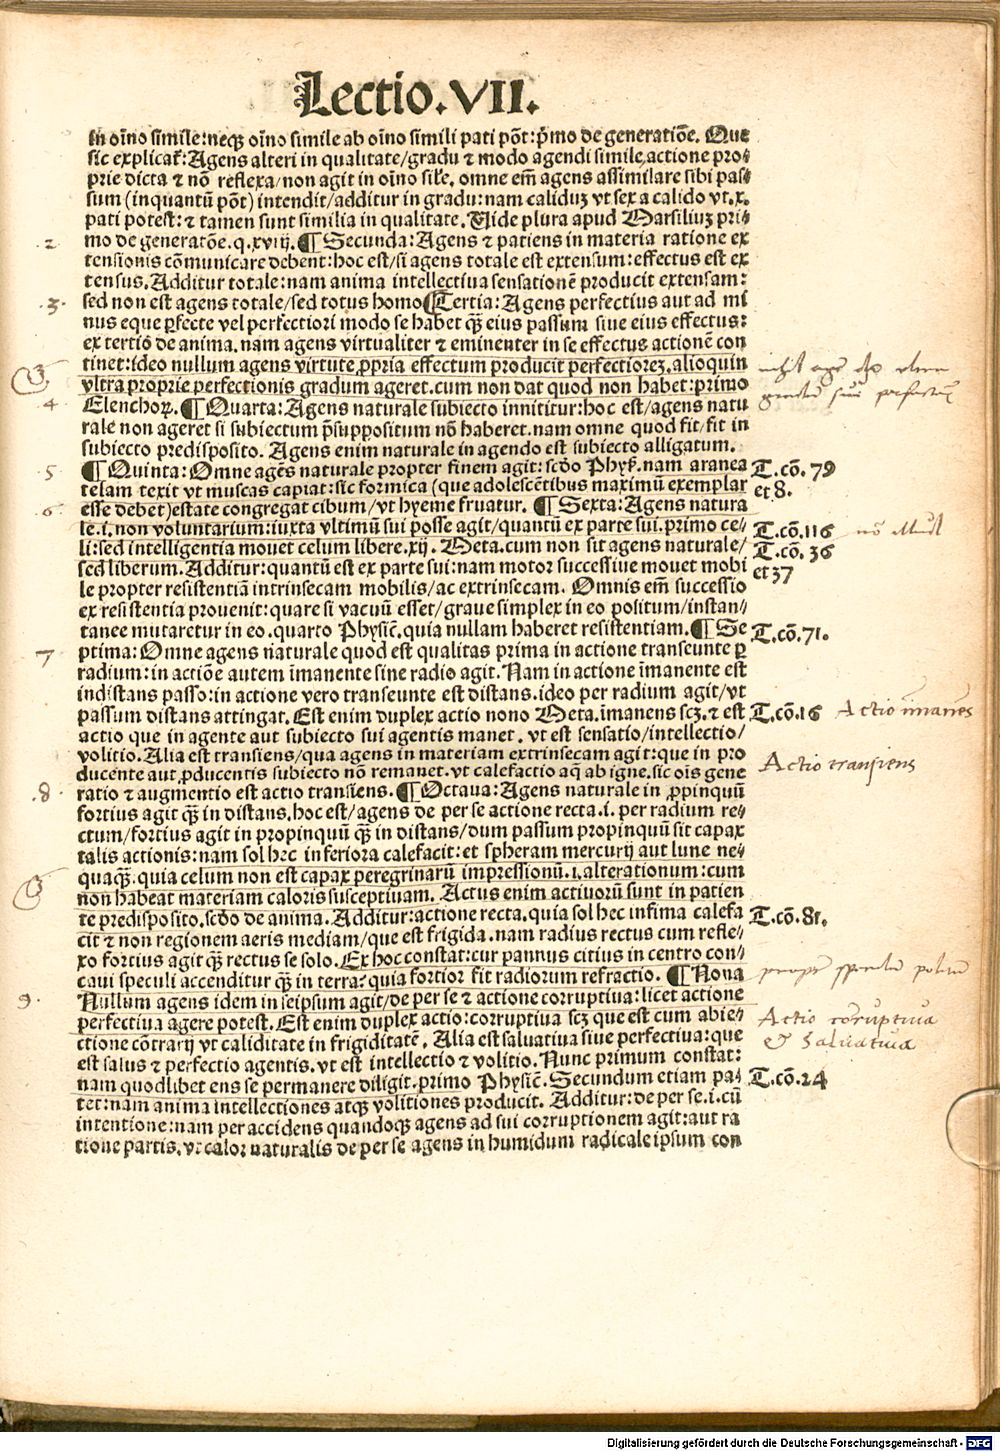 Lectio.VII.
in oi̅no simile:neqꝫ oi̅no simile ab oi̅no simili pati po̅t:p̅mo de generatio̅e. Que
sic explicat̅:Agens alteri in qualitate/gradu ⁊ modo agendi simile,actione pro⸗
prie dicta ⁊ no̅ reflexa/non agit in oi̅no sil̅e. omne em̅ agens assimilare sibi pas⸗
sum (inquantu̅ po̅t) intendit/additur in gradu:nam caliduꝫ vt sex a calido vt.x.
pati potest:⁊ tamen sunt similia in qualitate. Vide plura apud Marsiliuꝫ pri⸗
2 mo de generato̅e.q.xviij.¶ Secunda:Agens ⁊ patiens in materia ratione ex
tensionis co̅municare debent:hoc est/si agens totale est extensum:effectus est ex
tensus. Additur totale:nam anima intellectiva sensatione̅ producit extensam:
3. sed non est agens totale/sed totus homo ¶Tertia:Agens perfectius aut ad mi
nus eque ꝑfecte vel perfectiori modo se habet qꝫ̅ eius passum siue eius effectus:
ex tertio̅ de anima.nam agens virtualiter ⁊ eminenter in se effectus actione̅ con
tinet:ideo nullum agens virtute ꝓpria effectum producit perfectioreꝫ.alioquin
vltra proprie perfectionis gradum ageret.cum non dat quod non habet:primo
4 Elenchoꝝ.¶Quarta:Agens naturale subiecto innititur:hoc est/agens natu
rale non ageret si subiectum p̅suppositum no̅ haberet.nam omne quod fit/fit in
subiecto predisposito. Agens enim naturale in agendo est subiecto alligatum.
5 ¶Quinta:Omne age̅s naturale propter finem agit:sc̅do Phys̅.nam aranea T.co̅. 79
telam texit vt muscas capiat:sic formica (que adolesce̅tibus maximu̅ exemplar et 8.
6 esse debet)estate congregat cibum/vt hyeme fruatur. ¶Sexta:Agens natura
le.i.non voluntarium:iuxta vltimu̅ sui posse agit/quantu̅ ex parte sui.primo ce⸗ T.co̅.116
li:sed intelligentia mouet celum libere.xij. Meta.cum non sit agens naturale/ T.co̅. 36
sed liberum. Additur:quantu̅ est ex parte sui:nam motor successiue mouet mobi et 37
le propter resistentia̅ intrinsecam mobilis/ac extrinsecam. Omnis em̅ successio
ex resistentia prouenit:quare si vacuu̅ esset/graue simplex in eo positum/instan⸗
tanee mutaretur in eo.quarto Physic̅.quia nullam haberet resistentiam.¶Se T.co̅.71.
7 ptima:Omne agens naturale quod est qualitas prima in actione transeunte ꝑ
radium:in actio̅e autem i̅manente sine radio agit. Nam in actione i̅manente est
indistans passo:in actione vero transeunte est distans.ideo per radium agit/vt
passum distans attingat. Est enim duplex actio nono Meta.i̅manens scꝫ.⁊ est T.co̅.16 Actio i̅manens
actio que in agente aut subiecto sui agentis manet . vt est sensatio/intellectio/
volitio. Alia est transiens/qua agens in materiam extrinsecam agit:que in pro Actio transiens
ducente aut ꝓducentis subiecto no̅ remanet.vt calefactio aq̅ ab igne.sic ois gene
8. ratio ⁊ augmentio est actio transie̅s.¶Octaua:Agens naturale in ꝓpinquu̅
fortius agit qꝫ̅ in distans.hoc est/agens de per se actione recta.i.per radium re⸗
ctum/fortius agit in propinquu̅ qꝫ̅ in distans/dum passum propinquu̅ sit capax
talis actionis:nam sol hec inferiora calefacit:et spheram mercurij aut lune ne⸗
quaqꝫ̅.quia celum non est capax peregrinaru̅ impressionu̅.i.alterationum:cum
non habeat materiam caloris susceptiuam. Actus enim actiuoru̅ sunt in patien
te predisposito.sc̅do de anima. Additur:actione recta.quia sol hec infima calefa T.co̅.81.
cit ⁊ non regionem aeris mediam/que est frigida.nam radius rectus cum refle⸗
xo fortius agit qꝫ̅ rectus se solo. Ex hoc constat:cur pannus citius in centro con⸗
caui speculi accenditur qꝫ̅ in terra:quia fortior fit radiorum refractio. ¶Nona
9. Nullum agens idem in seipsum agit/de per se ⁊ actione corruptiua:licet actione
perfectiua agere potest. Est enim duplex actio:corruptiua scꝫ que est cum abie⸗ Actio corruptiua
ctione co̅trarij vt caliditate in frigiditate̅. Alia est saluatiua siue perfectiua:que et saluatiua
est salus ⁊ perfectio agentis.vt est intellectio ⁊ volitio. Nunc primum constat:
nam quodlibet ens se permanere diligit.primo Physic̅. Secundum etiam pa⸗ T.co̅.24
tet:nam anima intellectiones atqꝫ volitiones producit. Additur:de per se.i.cu̅
intentione:nam per accidens quandoqꝫ agens ad sui corruptionem agit:aut ra
tione partis.vt calor naturalis de per se agens in humidum radicale ipsum con
Digitalisierung gefördert durch die Deutsche Forschungsgemeinschaft - DFG